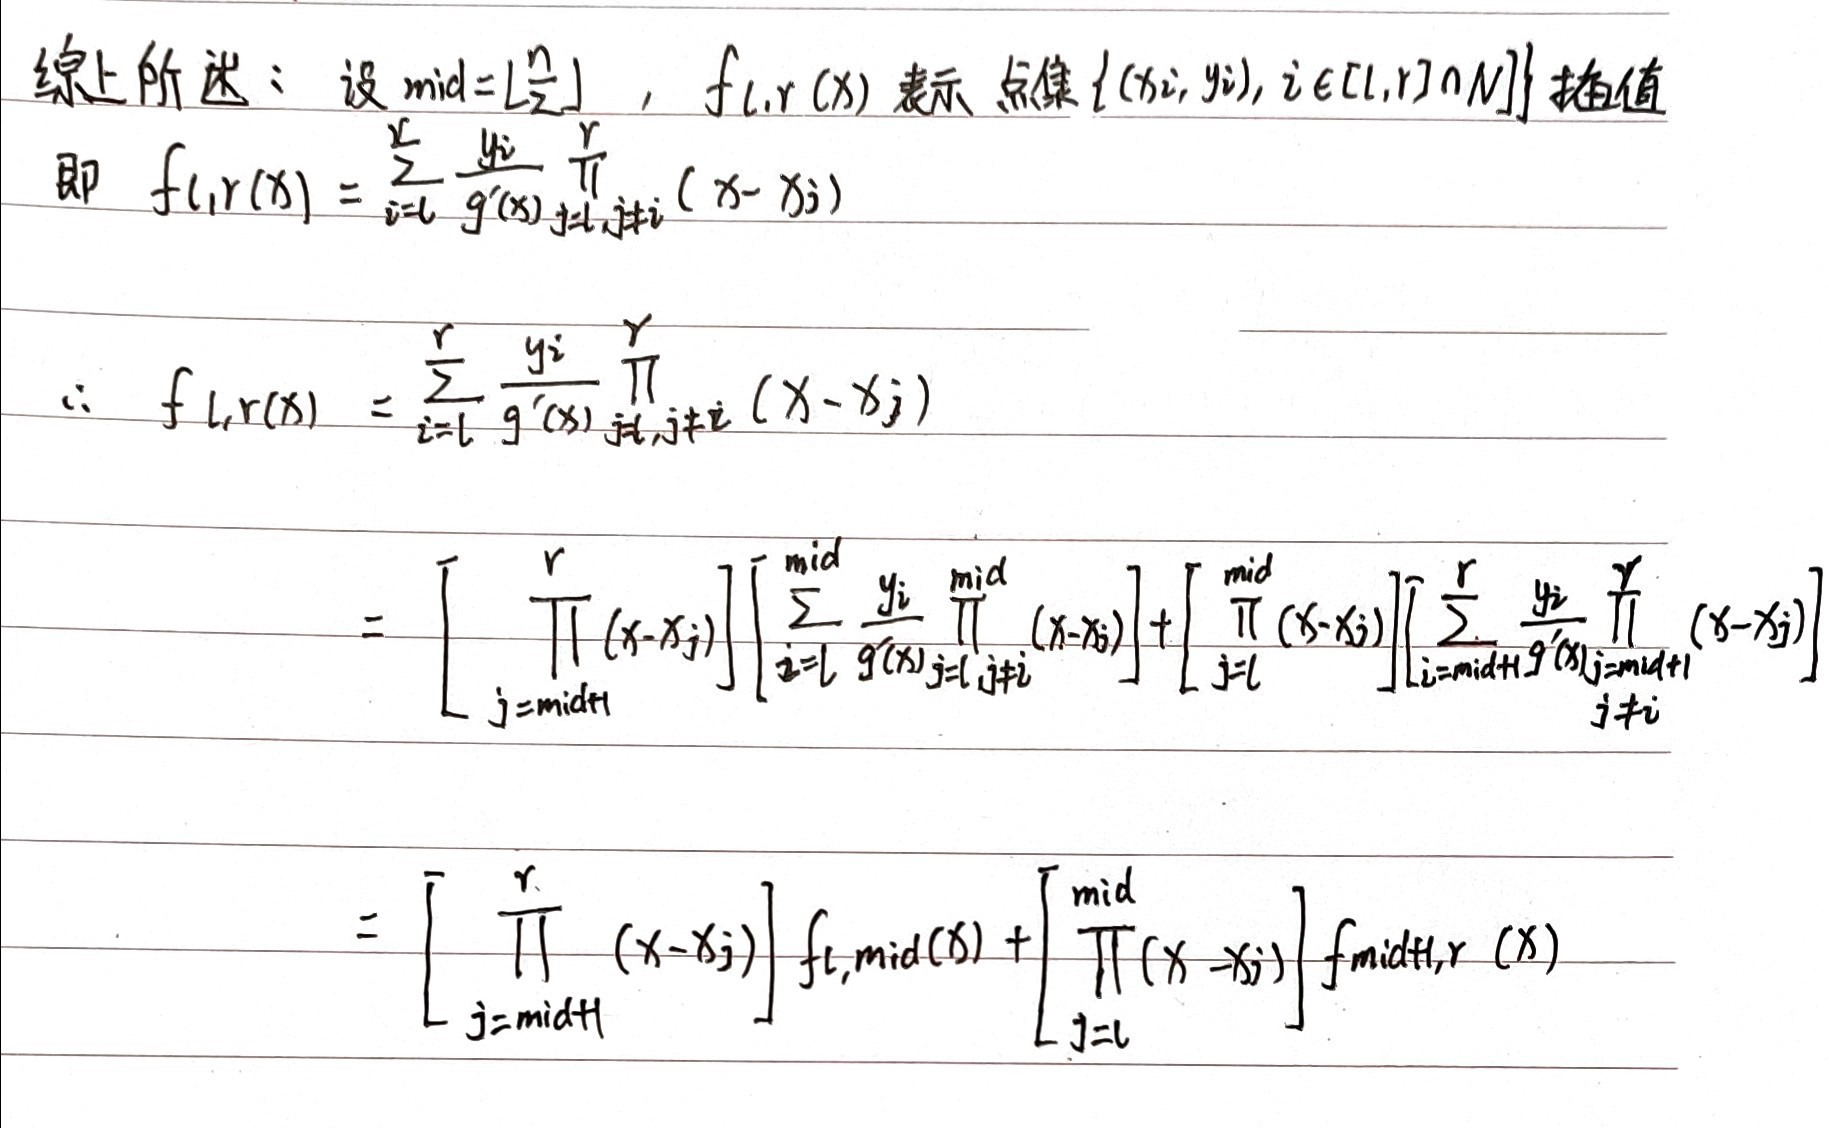 综上所述：设 mid=⌊n/2⌋，f_{l,r}(x) 表示 点集{(xi, yi), i∈[l,r]∩N]} 插值
即 f_{l,r}(x) = \sum_{i=l}^{r} \frac{yi}{g'(x)} \prod_{j=l,j≠i}^{r} (x-xj)
∴ f_{l,r}(x) = \sum_{i=l}^{r} \frac{yi}{g'(x)} \prod_{j=l,j≠i}^{r} (x-xj)
= [\prod_{j=mid+1}^{r} (x-xj)] [\sum_{i=l}^{mid} \frac{yi}{g'(x)} \prod_{j=l,j≠i}^{mid} (x-xj)] + [\prod_{j=l}^{mid} (x-xj)] [\sum_{i=mid+1}^{r} \frac{yi}{g'(x)} \prod_{j=mid+1, j≠i}^{r} (x-xj)]
= [\prod_{j=mid+1}^{r} (x-xj)] f_{l,mid}(x) + [\prod_{j=l}^{mid} (x-xj)] f_{mid+1,r}(x)